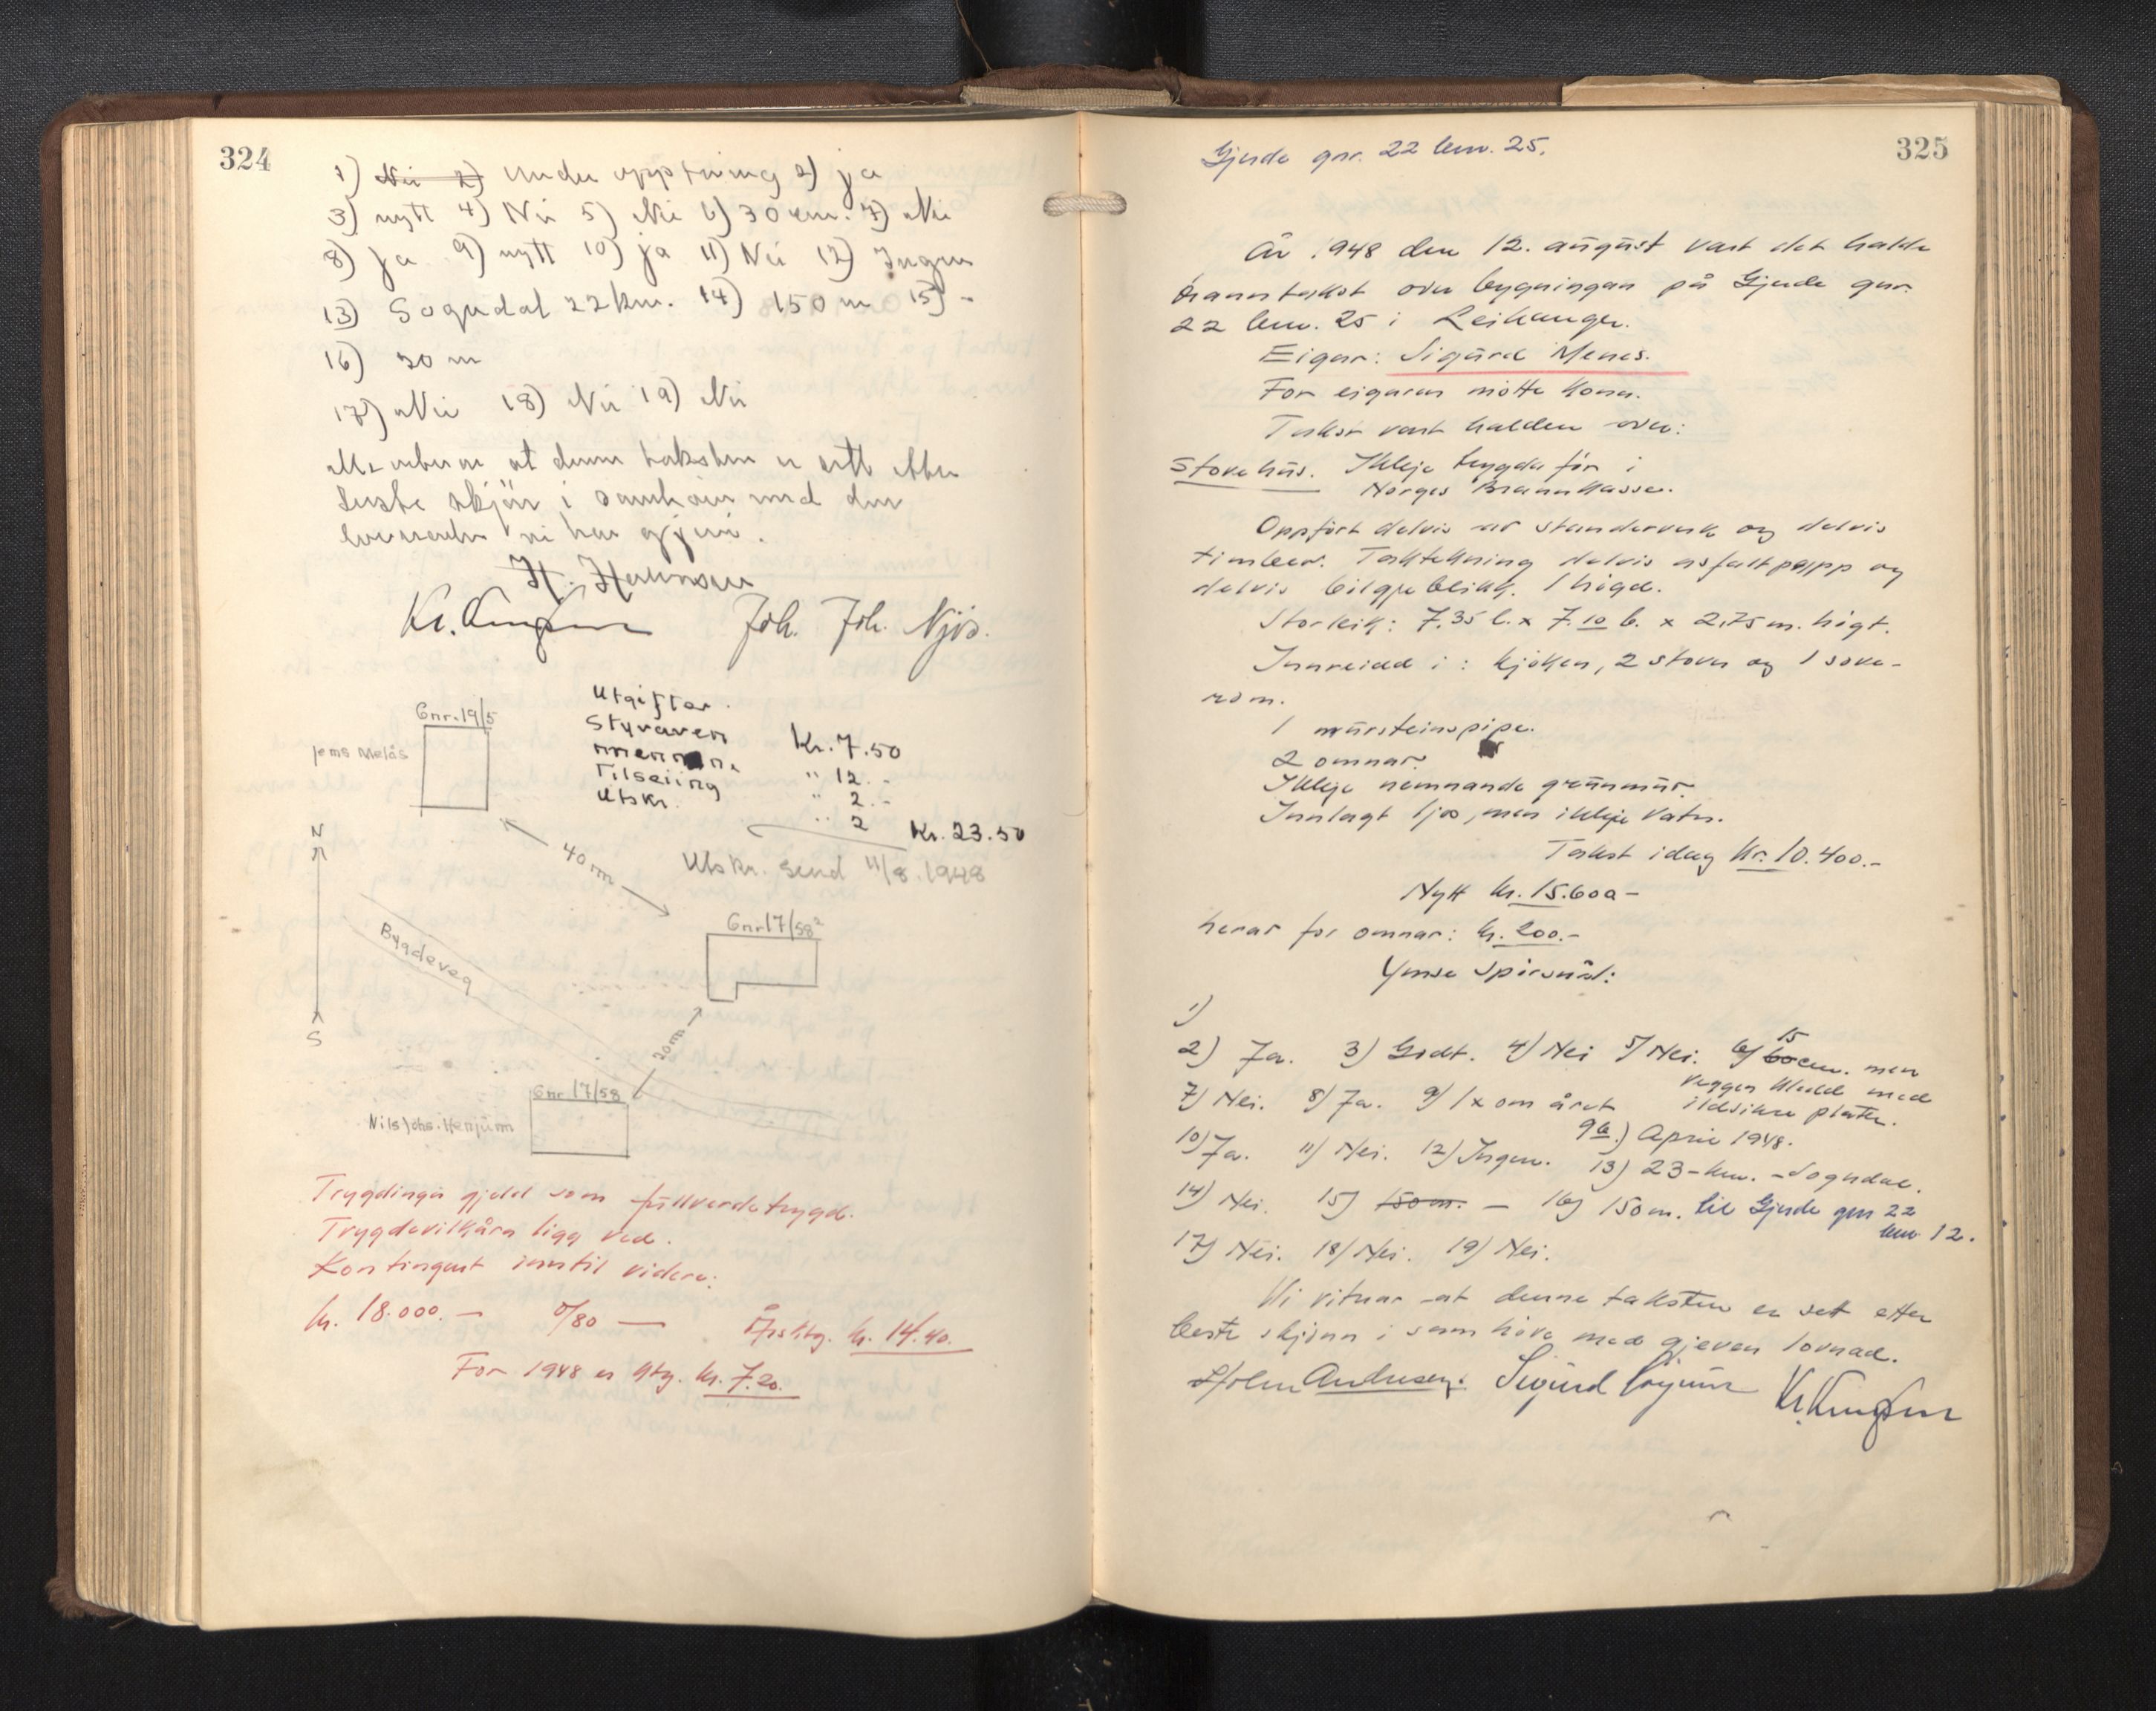 324
1) Nei 2) under oppföring 2) ja
3) nytt 4) Nei 5) Nei 6) 30 cm. 7) Nei
8) ja 9) nytt 10) ja 11) Nei 12) Ingen
13) Sogndal 22 km. 14) 150 m 15) -
16) 20 m
17) Nei 18) Nei 19) Nei
at denne taksten er sett etter
beste skjön i samhöve med den
lovnaden vi har gjevi.
H.
Kr. Joh. Joh. Njös.
Gnr. 19/5
Jens Melås
Utgifter.
Styraren Kr. 7.50
" 12.-
Tilseiing " 2.-
Utskr. " 2
Kr. 23.50
Utskr. Send 11/8. 1948
N
S
40 m
Bygdeveg
Gnr 17/58²
20 m
Gnr 17/58
Nils Johs. Henjum
Trygdinga gjeld som fullverdetrygd.
Trygdevilkåra ligg ved.
Kontingent inntil vidare:
kr. 18.000.- 0/80 — Årsktg. kr. 14.40.
For 1948 er ktg. kr. 7.20.
325
Gjerde gnr. 22 bnr. 25.
År 1948 den 12. august vart det halde
branntakst over bygningan på Gjerde gnr.
22 bnr. 25 i Leikanger.
Eigar: Sigurd Menes.
For eigaren møtte kona.
Takst vart halden over:
Stovehus. Ikkje trygda før i
Norges Brannkasse.
Oppført delvis av standerverk og delvis
timber. Taktekning delvis asfaltpapp og
delvis bilgjeblikk. 1 høgd.
Storleik: 7.35 l. x 7.10 b. x 2,75 m. høgt.
Innreidd i: kjøken, 2 stover og 1 sove-
rom.
1 mursteinspipe.
2 omnar.
Ikkje nemnande grunnmur.
Innlagt ljos, men ikkje vatn.
Takst idag kr. 10.400.-
Nytt kr. 15.600-
herav for omnar: kr. 200.-
Ymse spirsmål:
1)
2) Ja. 3) Godt. 4) Nei 5) Nei. 6) 60 15 cm. men
veggen kledd med
ildsikre plater.
7) Nei. 8) Ja. 9) 1 x om året
9b.) April 1948.
10) Ja. 11) Nei. 12) Ingen. 13) 23 - km. - Sogndal.
14) Nei. 15) 150 m. - 16) 150 m. til Gjerde gnr 22
bnr 12.
17) Nei. 18) Nei. 19) Nei.
Vi vitnar at denne taksten er sett etter
beste skjønn i samhøve med gjeven lovnad.
Andresen. Sigurd